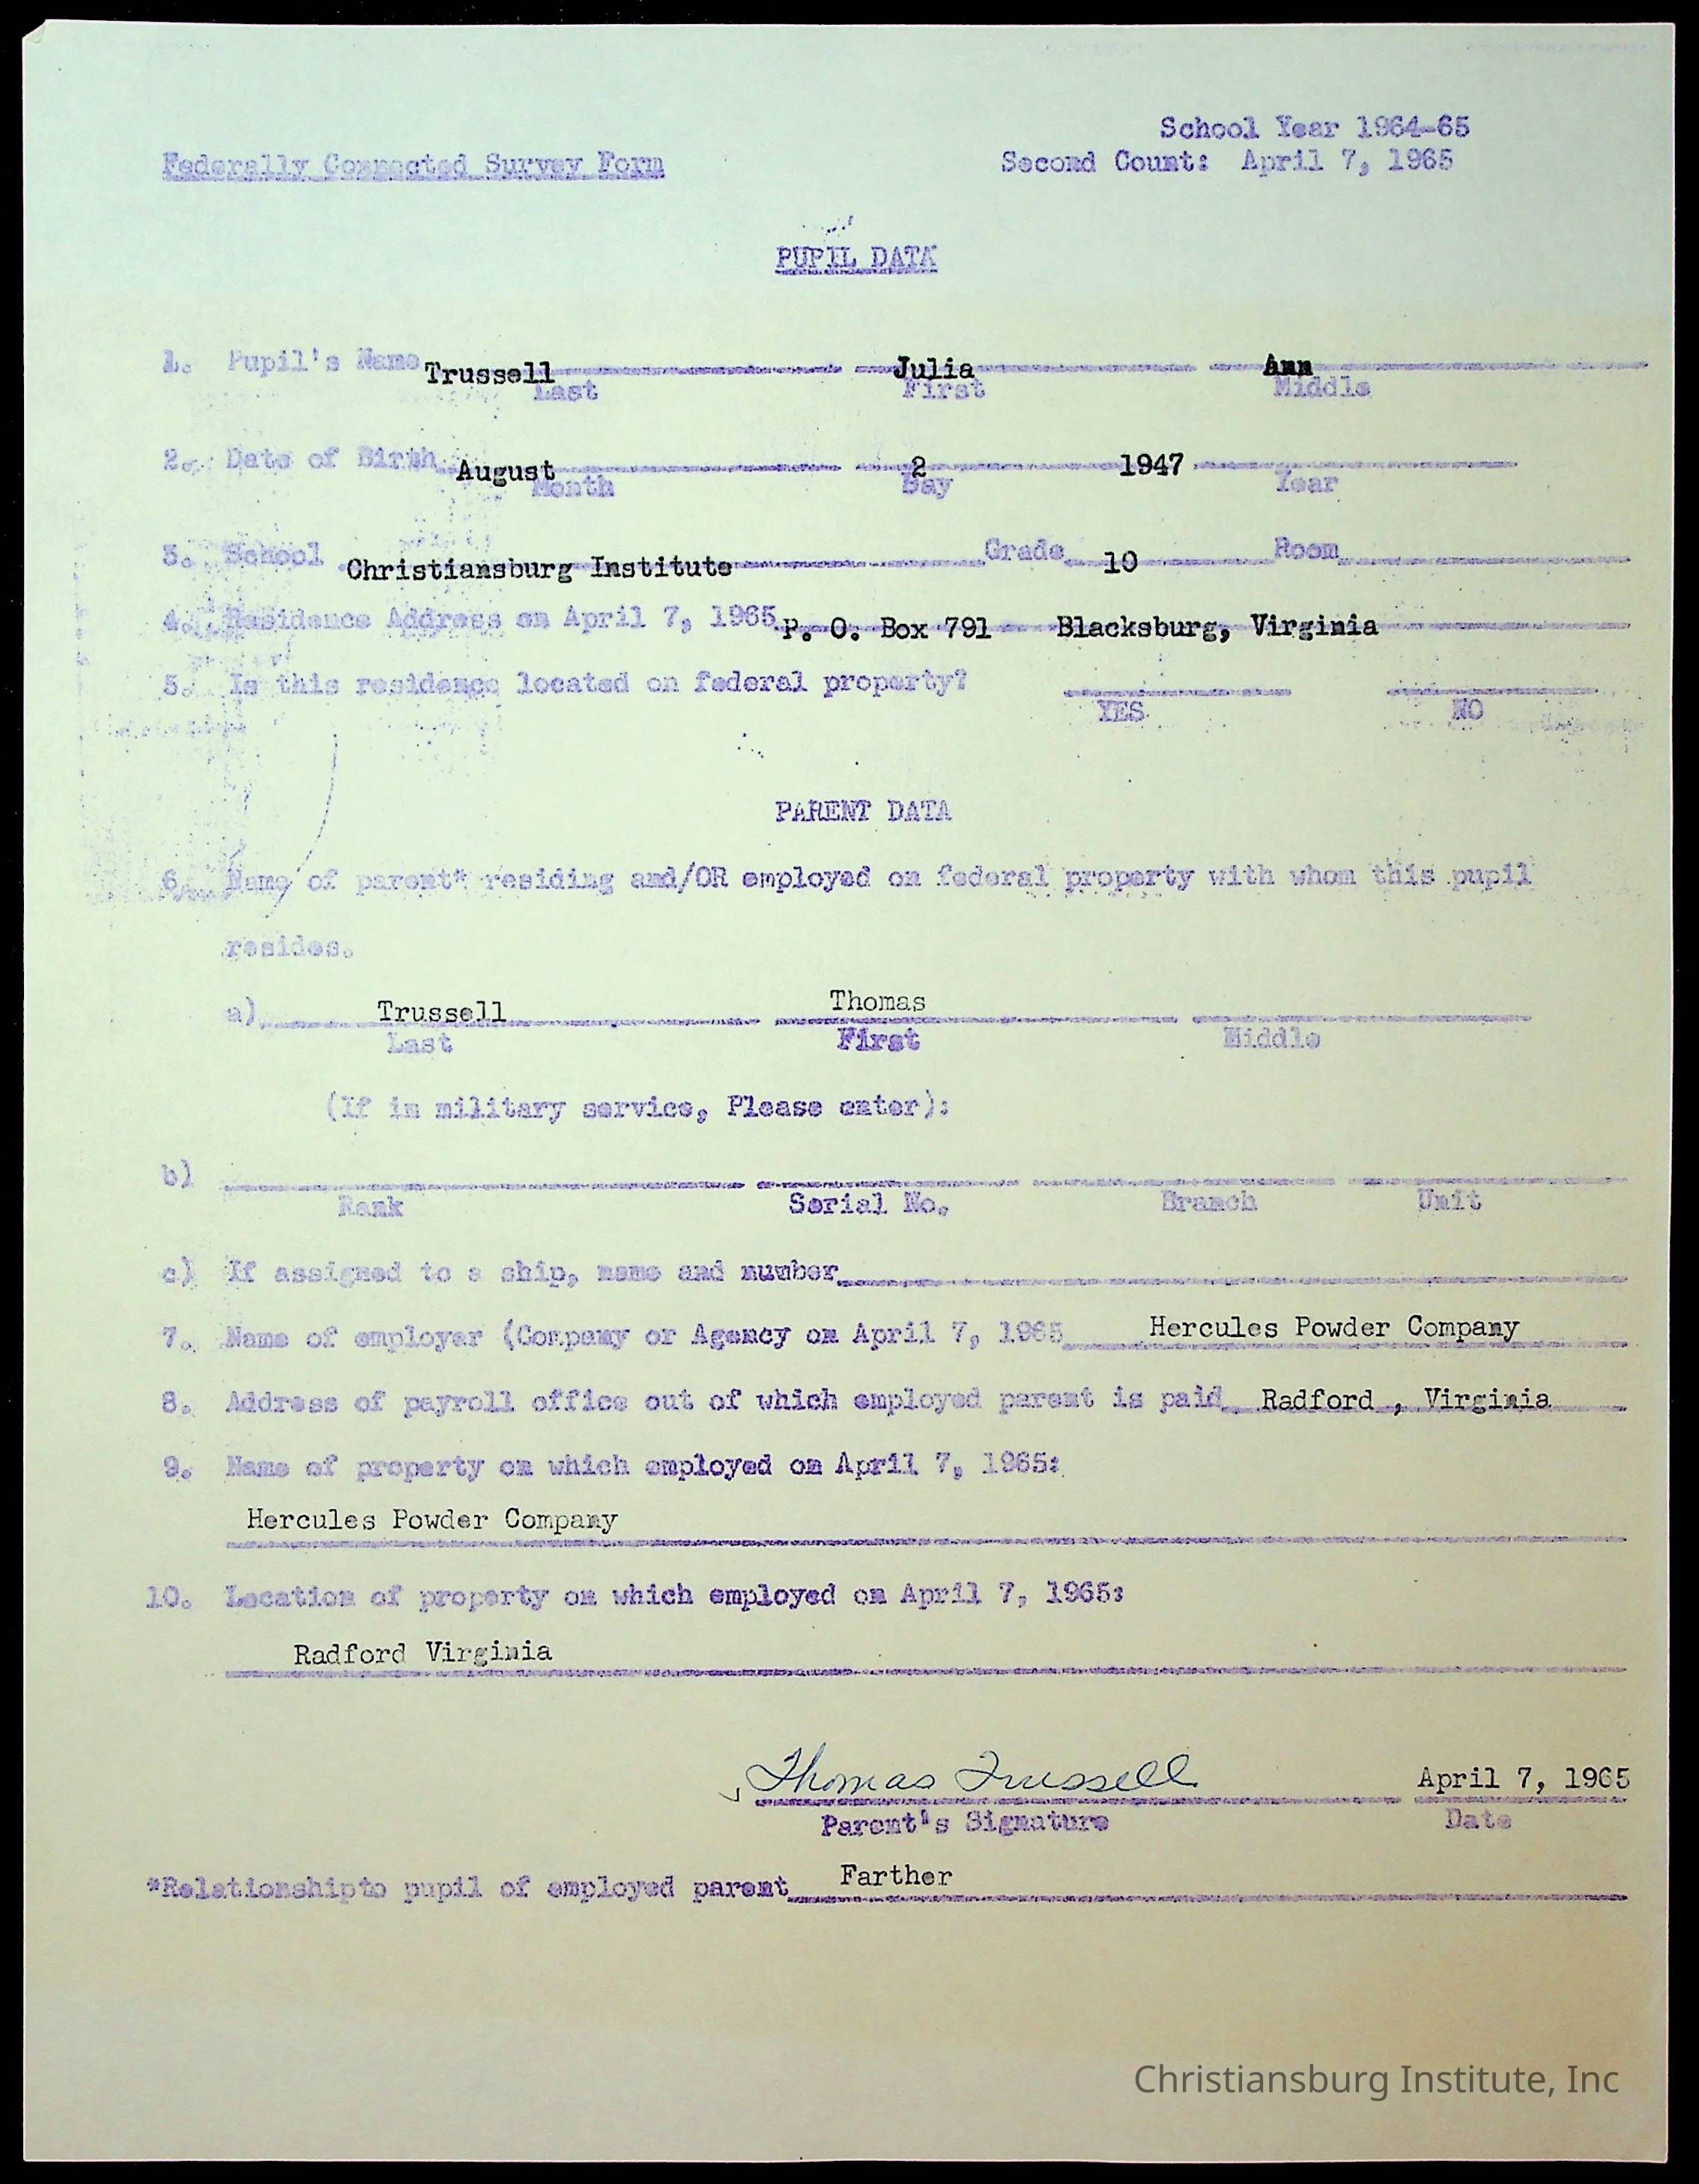 School Year 1964-65
Federally Connected Survey Form Second Count: April 7, 1965
PUPIL DATA
1. Pupil's Name Trussell Julia Ann
Last First Middle
2. Date of Birth August 2 1947
Month Day Year
3. School Christiansburg Institute Grade 10 Room
4. Residence Address on April 7, 1965 P. O. Box 791 Blacksburg, Virginia
5. Is this residence located on federal property?
YES NO
PARENT DATA
6. Name of parent* residing and/OR employed on federal property with whom this pupil
resides.
a) Trussell Thomas
Last First Middle
(If in military service, Please enter):
b)
Rank Serial No. Branch Unit
c) If assigned to a ship, name and number
7. Name of employer (Company or Agency on April 7, 1965 Hercules Powder Company
8. Address of payroll office out of which employed parent is paid Radford , Virginia
9. Name of property on which employed on April 7, 1965:
Hercules Powder Company
10. Location of property on which employed on April 7, 1965:
Radford Virginia
Thomas Trussell April 7, 1965
Parent's Signature Date
*Relationshipto pupil of employed parent Farther
Christiansburg Institute, Inc